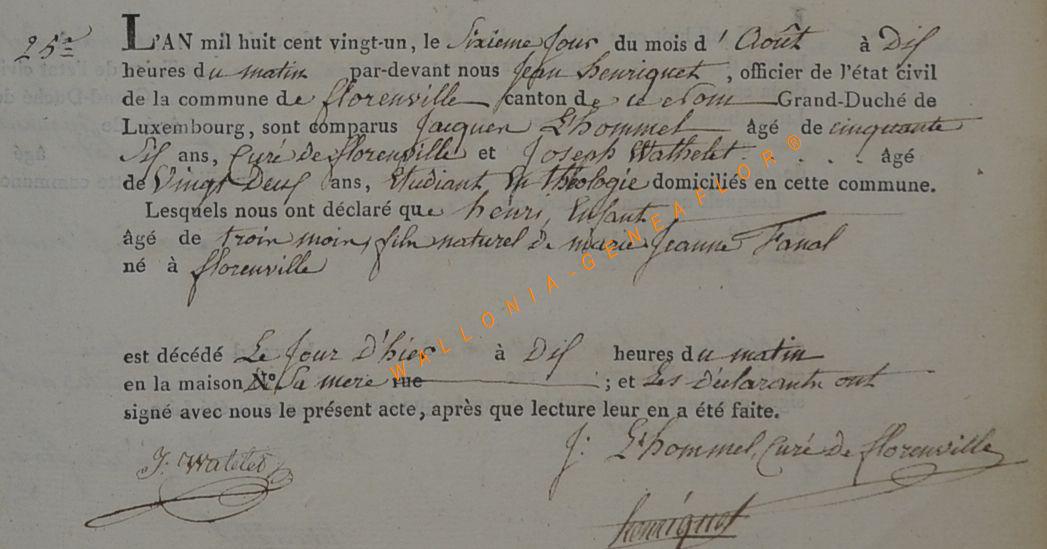 25e L'AN mil huit cent vingt-un, le Sixieme Jour du mois d' Août à Dix
heures du matin par-devant nous Jean henriquet, officier de l'état civil
de la commune de florenville canton de ce Nom Grand-Duché de
Luxembourg, sont comparus Jacques Lhommel âgé de cinquante
Six ans, Curé de florenville et Joseph Wathelet . . . . . âgé
de Vingt Deux ans, Etudiant En théologie domiciliés en cette commune.
Lesquels nous ont déclaré que henri, Enfant
âgé de trois mois, fils naturel de marie Jeanne Fanal
né à florenville
est décédé Le Jour D'hier à Dix heures du matin
en la maison N° Sa mere rue ; et Les Déclarants ont
signé avec nous le présent acte, après que lecture leur en a été faite.
J: Lhommel, Curé de florenville
J. Watelet
henriquet
WALLONIA-GENEAFLOR ®